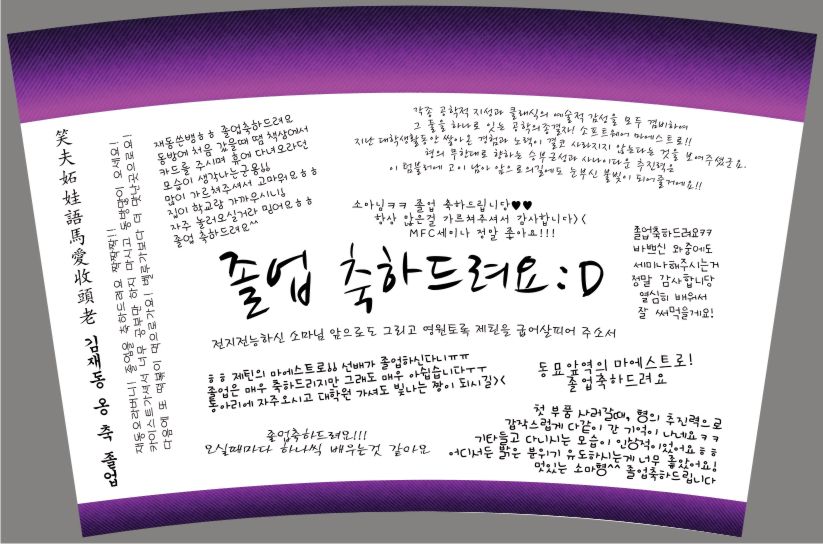 笑夫妬娃語馬愛收頭老 김재동 옹 축 졸업
재동오라버니! 졸업을 축하드려요 짝짝짝!!
카이스트가셔서 너무 공부만 하지 마시고 동방에 많이 오세요!
다음에 또 떡볶이 먹으러가요! 벨루가보다 더 맛난곳으로요!
재동쓴뱅ㅎㅎ 졸업축하드려요
동방에 처음 갔을때 땜 책상에서
카드를 주시며 휴에 다녀오라던
모습이 생각나는군용ㅎㅎ
많이 가르쳐주셔서 고마워요ㅎㅎ
집이 학교랑 가까우시니깅
자주 놀러오실거라 믿어요ㅎㅎ
졸업 축하드려요^^
각종 공학적 지성과 클래식의 예술적 감성을 모두 겸비하여
그 둘을 하나로 잇는 공학의종결자! 소프트웨어 마에스트로!!
지난 대학생활동안 쌓아온 경험과 노력이 결코 사라지지 않는다는 것을 보여주셨군요.
형의 무한대로 향하는 승부근성과 사나이다운 추진력은
이 텀블러에 고이 남아 앞으로의길에도 눈부신 불빛이 되어줄거에요!!
소마님ㅋㅋ 졸업 축하드립니당♥♥
항상 많은걸 가르쳐주셔서 감사합니다><
MFC세미나 정말 좋아요!!!
졸업축하드려요ㅋㅋ
바쁘신 와중에도
세미나해주시는거
정말 감사합니당
열심히 배워서
잘 써먹을게요!
졸업 축하드려요:D
전지전능하신 소마님 앞으로도 그리고 영원토록 제퓐을 굽어살피어 주소서
ㅎㅎ 제퓐의 마에스트로!! 선배가 졸업하신다니ㅠㅠ
졸업은 매우 축하드리지만 그래도 매우 아쉽습니다ㅜㅜ
통아리에 자주오시고 대학원 가셔도 빛나는 짱이 되시길><
동묘앞역의 마에스트로!
졸업축하드려요
졸업축하드려요!!!
오실때마다 하나씩 배우는것 같아요
첫 부품 사러갈때, 형의 추진력으로
갑작스럽게 다같이 간 기억이 나네요ㅋㅋ
기타들고 다니시는 모습이 인상적이었어요ㅎㅎ
어디서든 밝은 분위기 유도하시는게 너무 좋았어요!
멋있는 소마형^^ 졸업축하드립니다